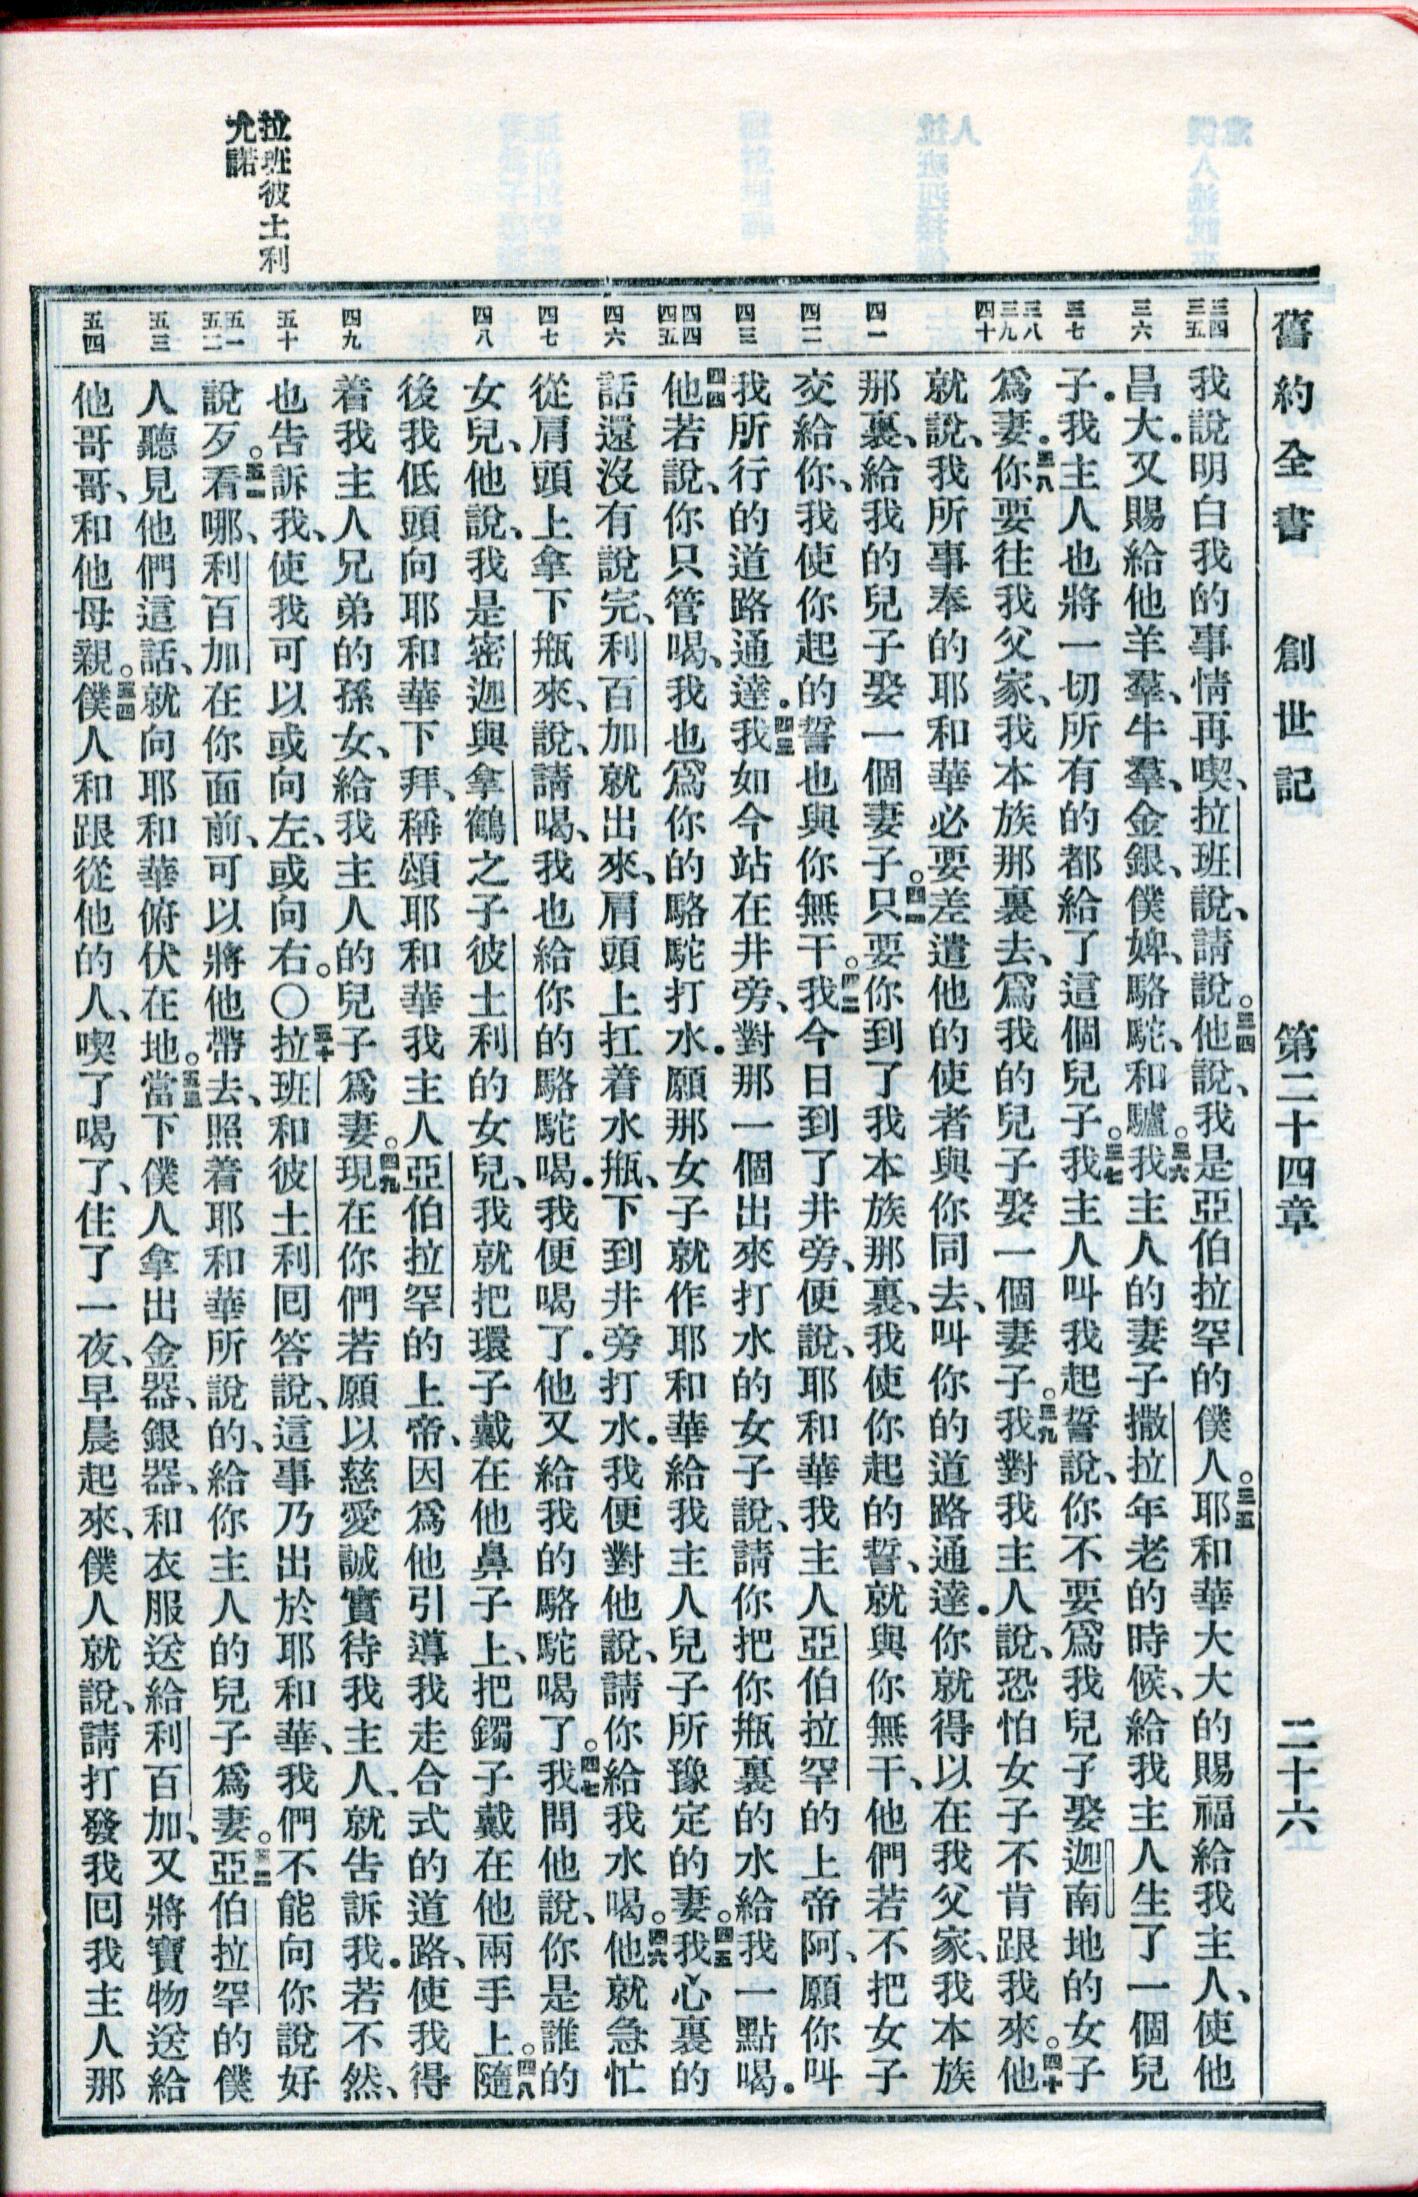 舊約全書 創世記 第二十四章 二十六
拉班彼土利
允諾
三四
三五
三六
三七
三八
三九
四十
四一
四二
四三
四四
四五
四六
四七
四八
四九
五十
五一
五二
五三
五四
我說明白我的事情再喫、拉班說、請說。三四他說、我是亞伯拉罕的僕人。三五耶和華大大的賜福給我主人、使他
昌大．又賜給他羊羣、牛羣、金銀、僕婢、駱駝、和驢。三六我主人的妻子撒拉年老的時候、給我主人生了一個兒
子．我主人也將一切所有的都給了這個兒子。三七我主人叫我起誓說、你不要爲我兒子娶迦南地的女子
爲妻．三八你要往我父家、我本族那裏去、爲我的兒子娶一個妻子。三九我對我主人說、恐怕女子不肯跟我來。四十他
就說、我所事奉的耶和華必要差遣他的使者與你同去、叫你的道路通達．你就得以在我父家、我本族
那裏、給我的兒子娶一個妻子。四一只要你到了我本族那裏、我使你起的誓、就與你無干、他們若不把女子
交給你、我使你起的誓也與你無干。四二我今日到了井旁、便說、耶和華我主人亞伯拉罕的上帝阿、願你叫
我所行的道路通達．四三我如今站在井旁、對那一個出來打水的女子說、請你把你瓶裏的水給我一點喝．
四四他若說、你只管喝、我也爲你的駱駝打水．願那女子就作耶和華給我主人兒子所豫定的妻。四五我心裏的
話還沒有說完、利百加就出來、肩頭上扛着水瓶、下到井旁打水．我便對他說、請你給我水喝。四六他就急忙
從肩頭上拿下瓶來、說、請喝、我也給你的駱駝喝．我便喝了．他又給我的駱駝喝了。四七我問他說、你是誰的
女兒、他說、我是密迦與拿鶴之子彼土利的女兒、我就把環子戴在他鼻子上、把鐲子戴在他兩手上。四八隨
後我低頭向耶和華下拜、稱頌耶和華我主人亞伯拉罕的上帝、因爲他引導我走合式的道路、使我得
着我主人兄弟的孫女、給我主人的兒子爲妻。四九現在你們若願以慈愛誠實待我主人、就告訴我．若不然、
也告訴我、使我可以或向左、或向右。〇五十拉班和彼土利回答說、這事乃出於耶和華、我們不能向你說好
說歹。五一看哪、利百加在你面前、可以將他帶去、照着耶和華所說的、給你主人的兒子爲妻。五二亞伯拉罕的僕
人聽見他們這話、就向耶和華俯伏在地。五三當下僕人拿出金器、銀器、和衣服送給利百加、又將寶物送給
他哥哥、和他母親。五四僕人和跟從他的人、喫了喝了、住了一夜、早晨起來、僕人就說、請打發我回我主人那